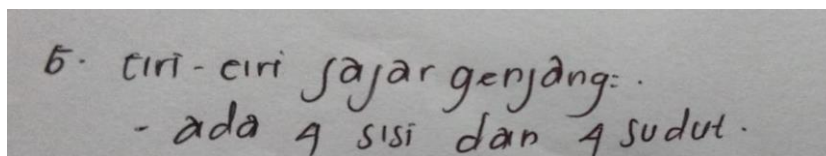 5. Ciri-ciri Jajar genjang:.
- ada 4 sisi dan 4 sudut.